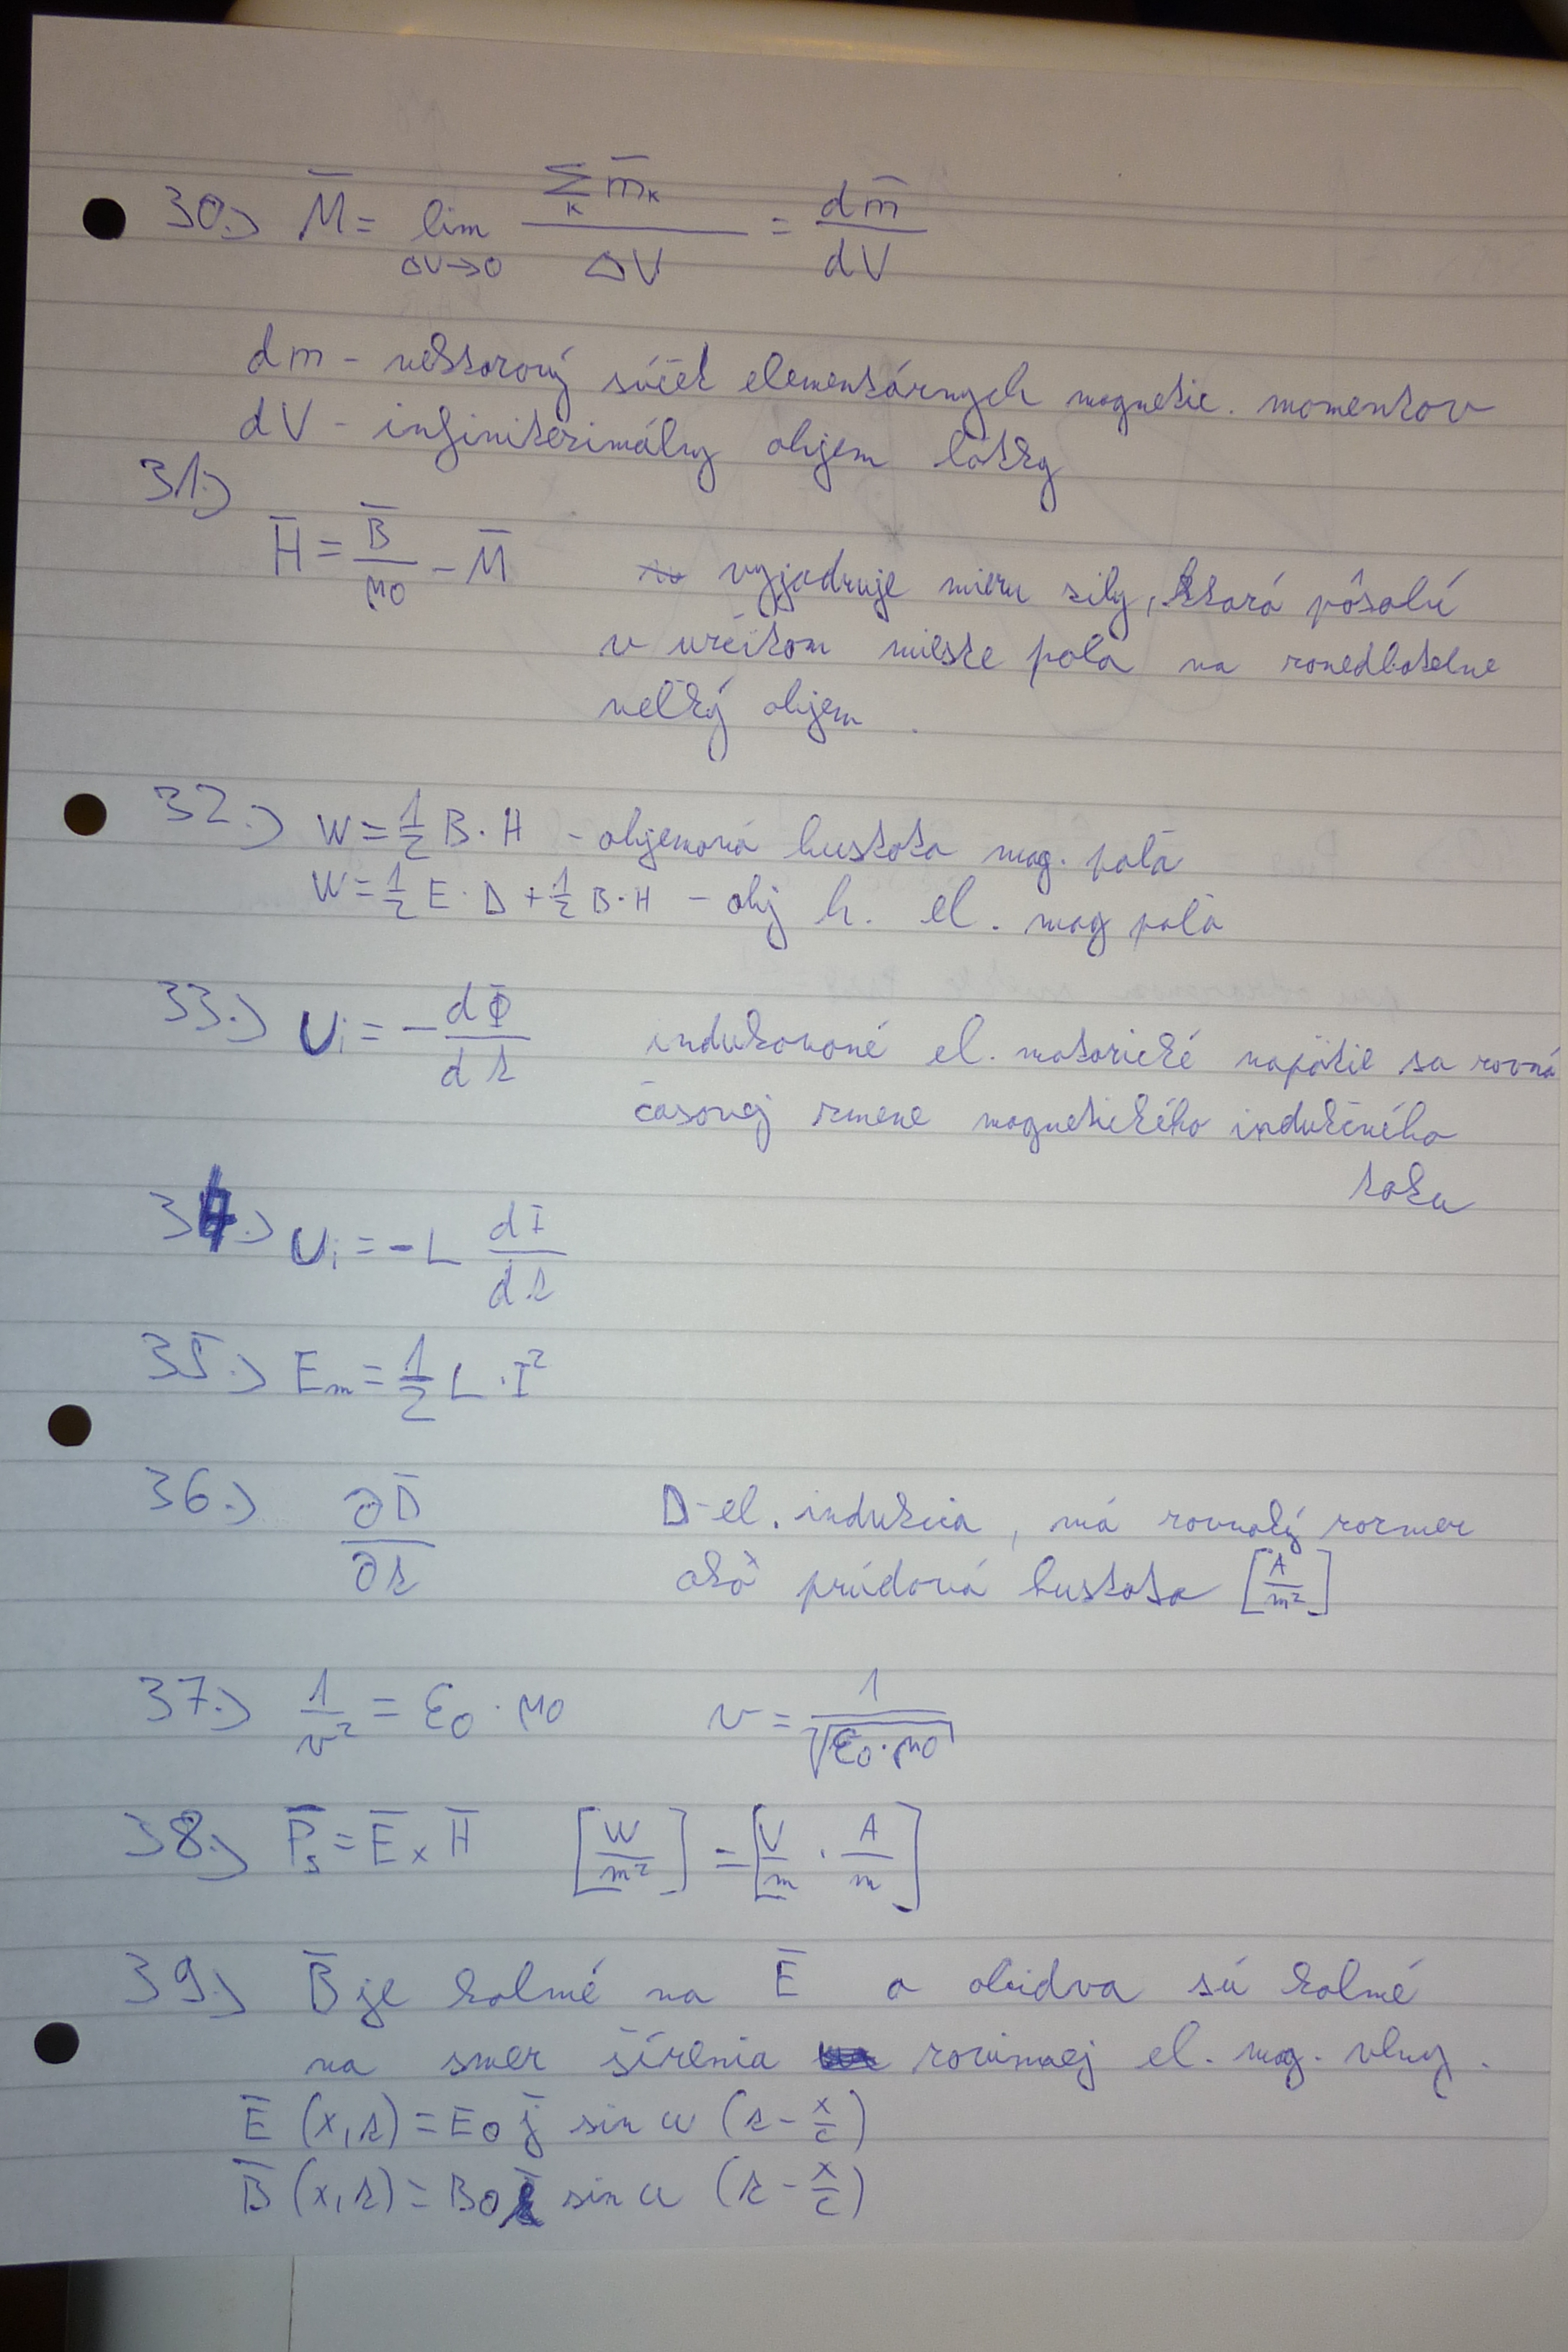 30.) M̄ = lim ΔV→0 Σₖ m̄ₖ / ΔV = dm̄ / dV
dm - vektorový súčet elementárnych magnetic. momentov
dV - infinitezimálny objem látky
31.)
H̄ = B̄ / μ0 - M̄ vyjadruje mieru sily, ktorá pôsobí
v určitom mieste pola na zanedbatelne
velký objem
32.) W = 1/2 B · H - objemová hustota mag. pola
W = 1/2 E · D + 1/2 B · H - obj h. el. mag pola
33.) Ui = - dΦ / dt indukované el. motorické napätie sa rovná
časovej zmene magnetického indukčného
toku
34.) Ui = - L dI / dt
35.) Em = 1/2 L · I²
36.) ∂D̄ / ∂t D - el. indukcia, má rovnaký rozmer
ako prúdová hustota [A / m²]
37.) 1 / v² = ε0 · μ0 v = 1 / √(ε0 · μ0)
38.) P̄s = Ē × H̄ [W / m²] = [V / m · A / m]
39.) B̄ je kolmé na Ē a obidva sú kolmé
na smer šírenia rovinnej el. mag. vlny.
Ē (x, t) = E0 j̄ sin ω (t - x/c)
B̄ (x, t) = B0 k̄ sin ω (t - x/c)